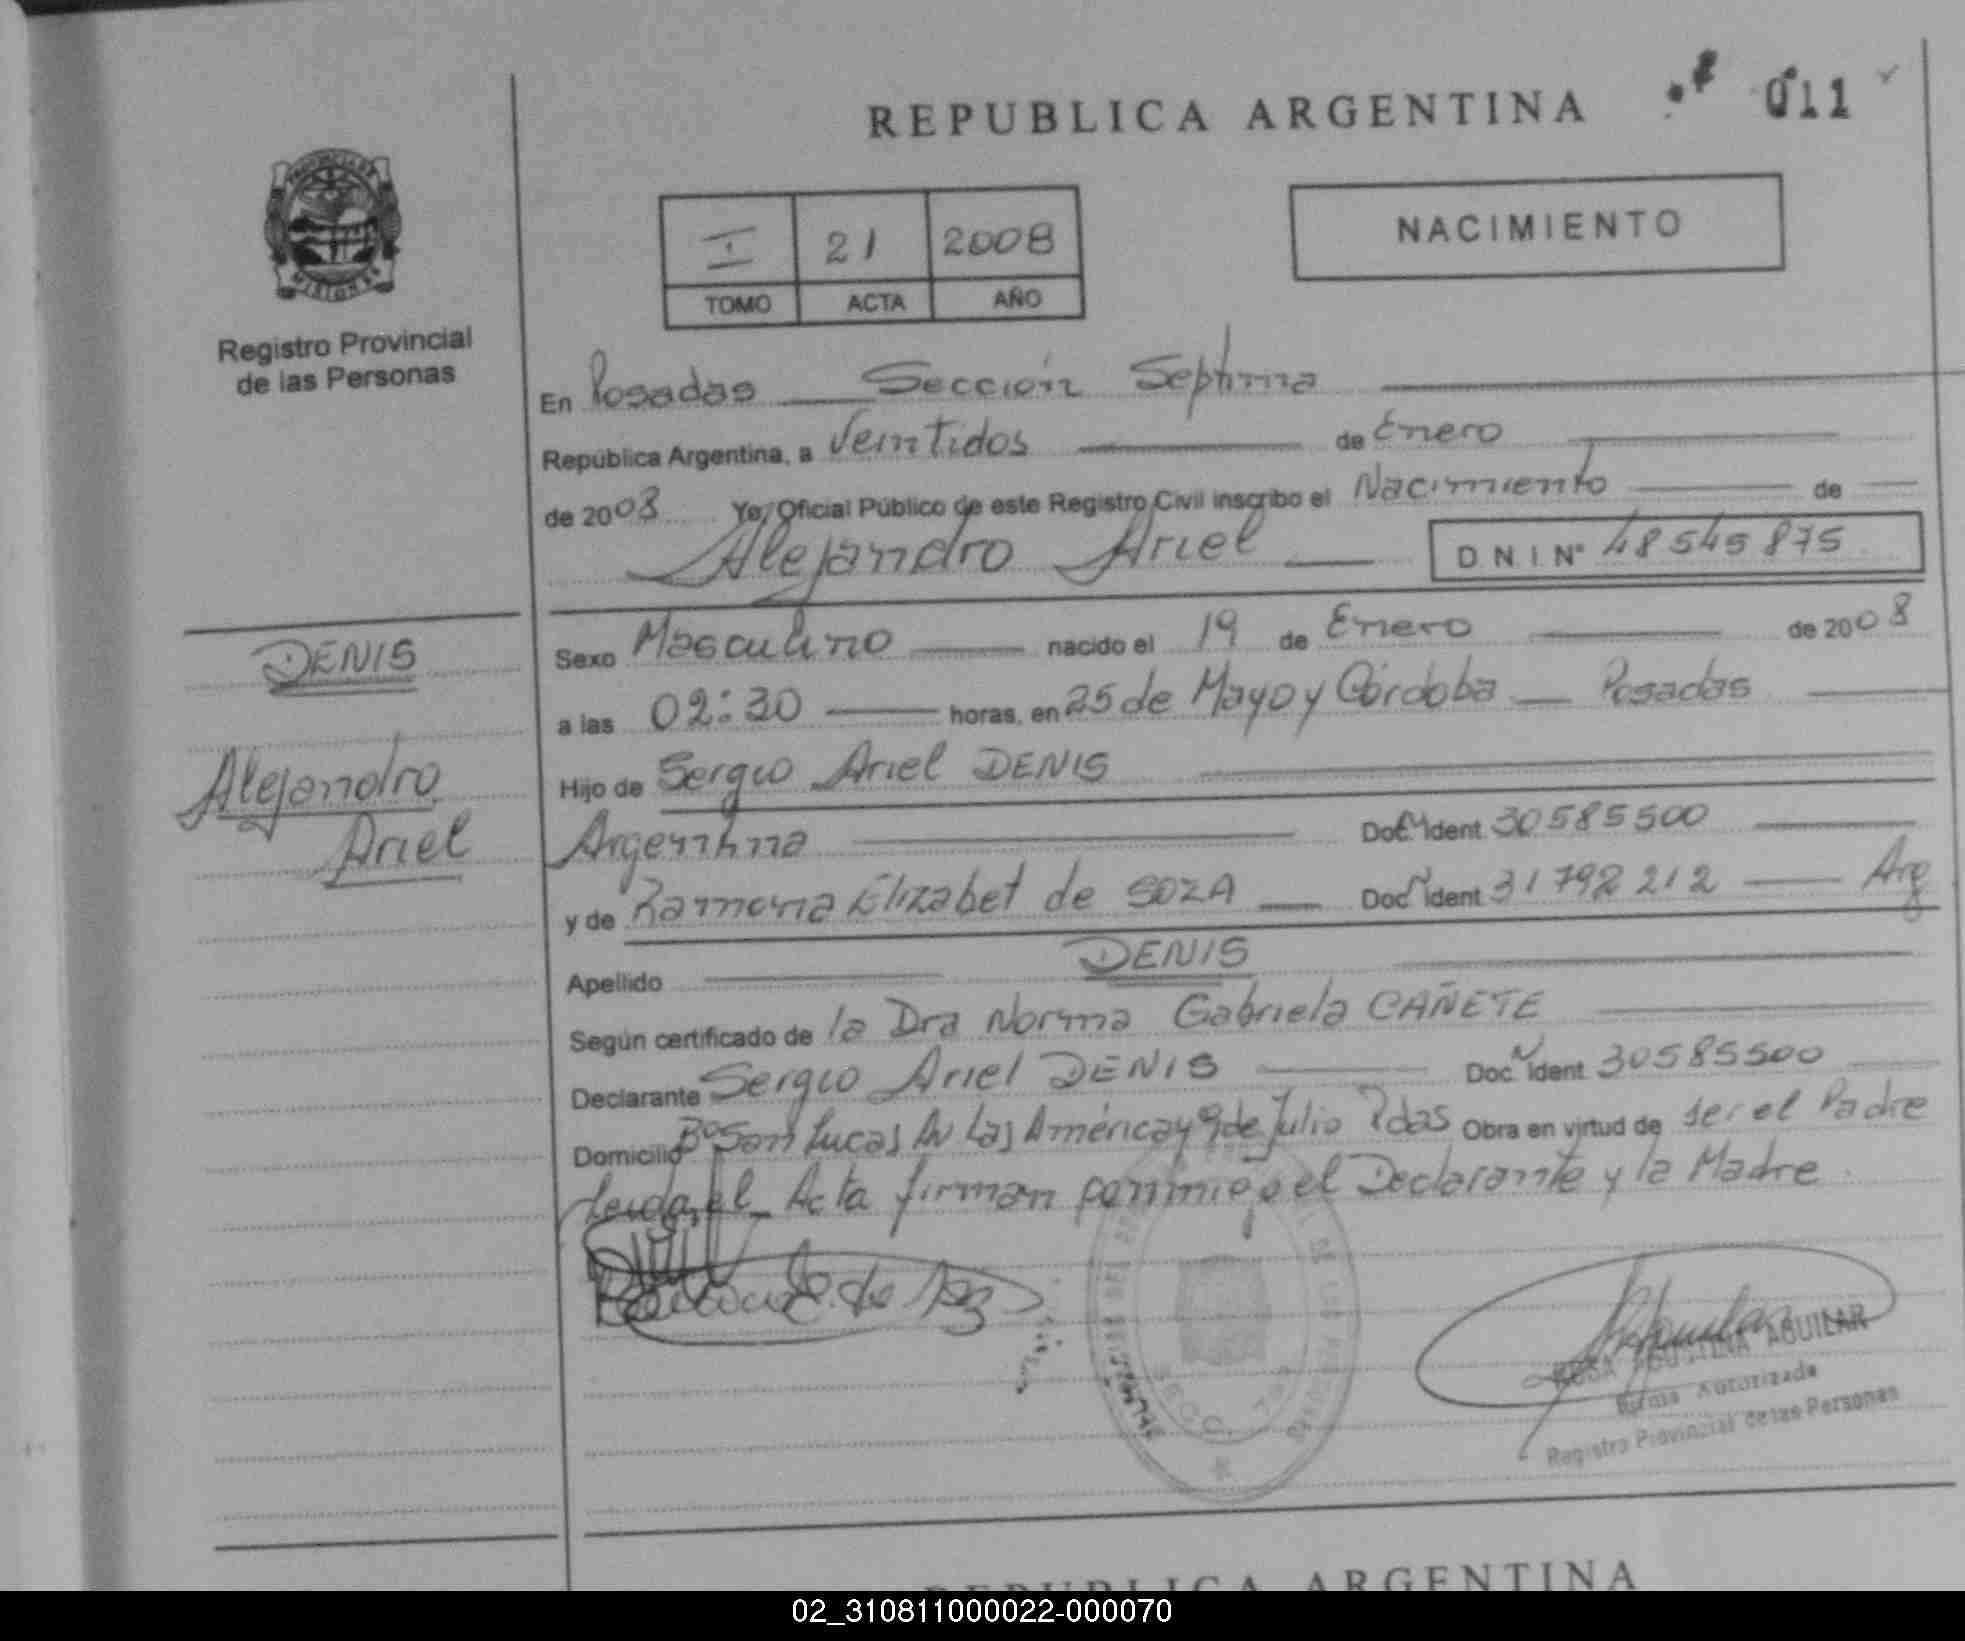 REPUBLICA ARGENTINA
011
PROVINCIA DE
MISIONES
Registro Provincial
de las Personas
I 21 2008
TOMO ACTA AÑO
NACIMIENTO
En Posadas Sección Septima
República Argentina, a Veintidos de Enero
de 2008 Yo, Oficial Público de este Registro Civil inscribo el Nacimiento de
Alejandro Ariel D N I Nº 48545875
DENIS
Alejandro
Ariel
Sexo Masculino nacido el 19 de Enero de 2008
a las 02:30 horas, en 25 de Mayo y Córdoba Posadas
Hijo de Sergio Ariel DENIS
Argentina Doc. Ident. 30585500
y de Ramona Elizabet de SOZA Doc. Ident. 31792212 Arg
Apellido DENIS
Según certificado de la Dra Norma Gabriela CAÑETE
Declarante Sergio Ariel DENIS Doc. Ident. 30585500
Domicilio Bº San Lucas Av Las América y 9 de Julio Pdas Obra en virtud de ser el Padre
Leida el Acta firman conmigo el Declarante y la Madre.
ROSA AGUSTINA AGUILAR
Firma Autorizada
Registro Provincial de las Personas
REPUBLICA ARGENTINA
02_310811000022-000070